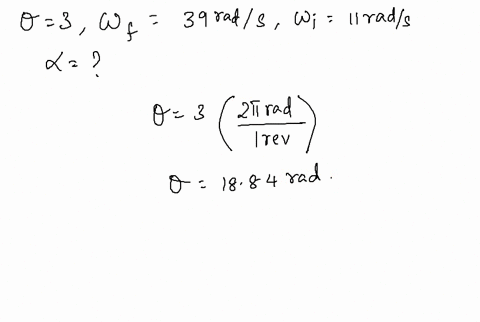 θ = 3, ω_f = 39 rad/s, ω_i = 11 rad/s
α = ?
θ = 3 (2π rad / 1 rev)
θ = 18.84 rad.